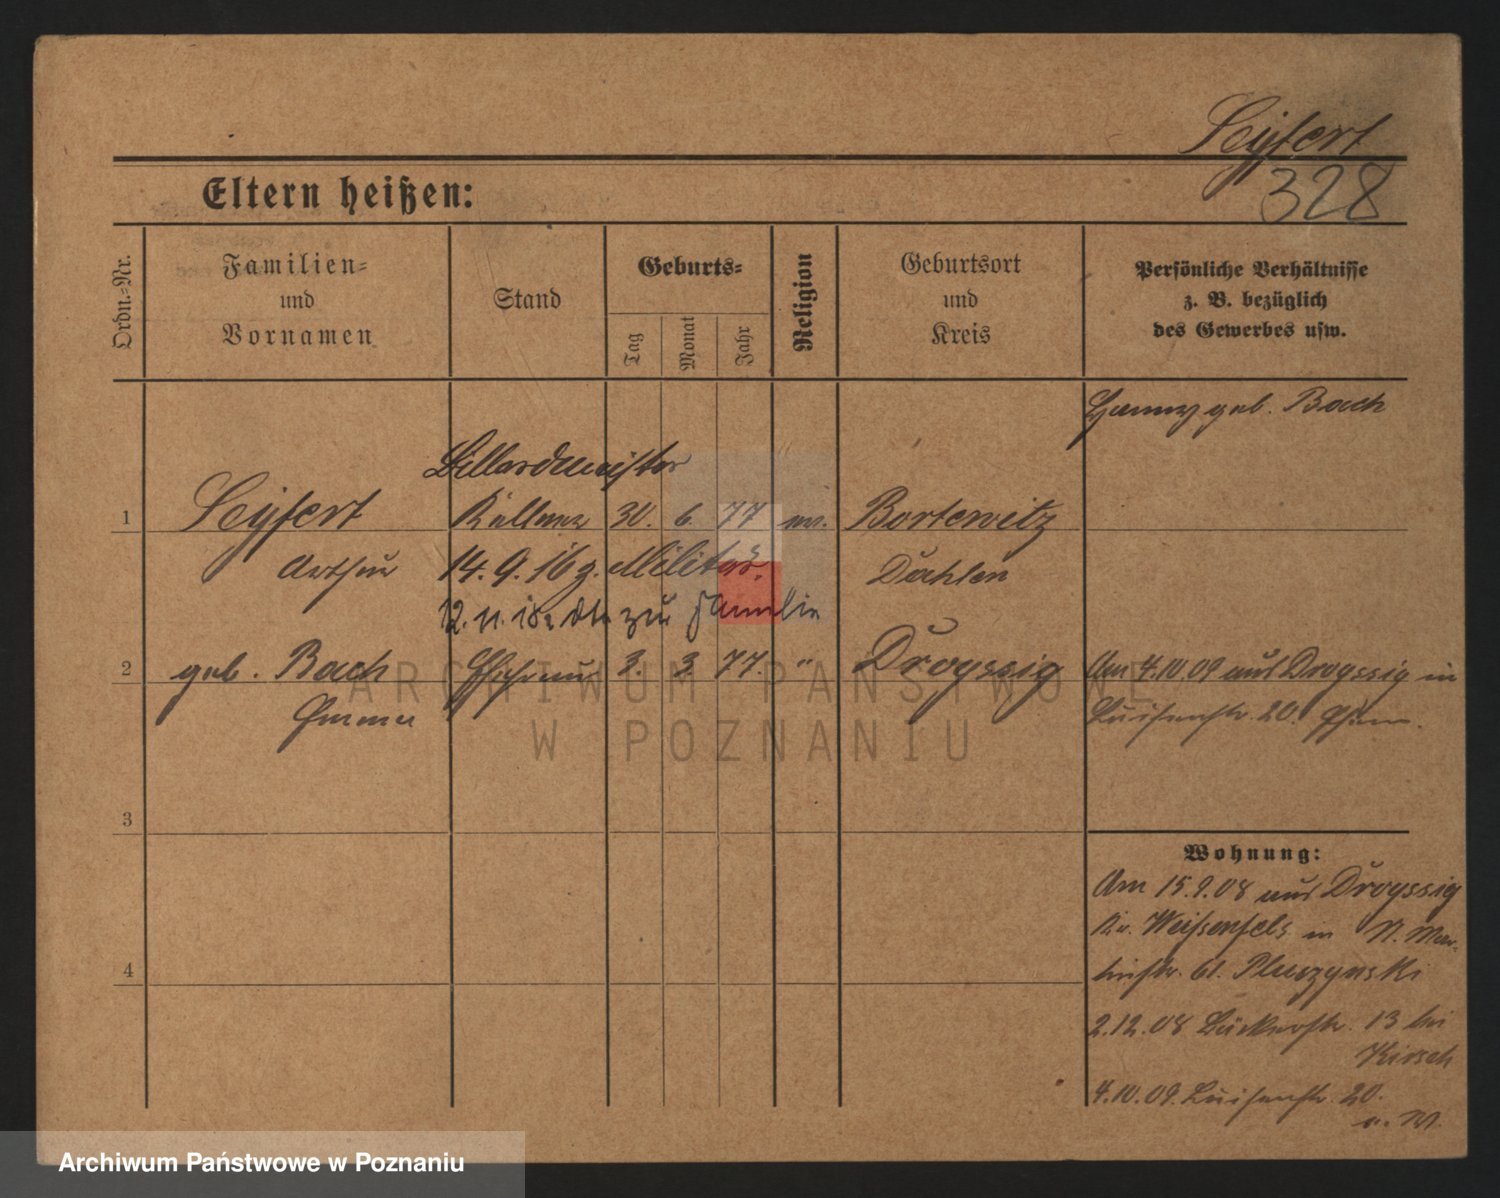 Seyfert
328
Eltern heißen:
Ordn.-Nr.
Familien-
und
Vornamen
Stand
Geburts-
Tag
Monat
Jahr
Religion
Geburtsort
und
Kreis
Persönliche Verhältnisse
z. B. bezüglich
des Gewerbes usw.
geb. Bach
Billardmeister
1 Seyfert Kellner 30. 6. 77 ev. Bortewitz
Arthur 14. 9. 16 z. Militär. Dahlen
12. 11. 18 zur Familie
2 geb. Bach Ehefrau 3. 3. 77. " Droyssig Am 4.10.09 aus Droyssig in
Emma Luisenstr. 20.
3
Wohnung:
Am 15.9.08 aus Droyssig
Kr. Weißenfels in N. Mar-
tinstr. 61. Pluszynski
4
2.12.08 Bäckerstr. 13 bei
Kirsch
4.10.09. Luisenstr. 20.
ARCHIWUM PAŃSTWOWE
W POZNANIU
Archiwum Państwowe w Poznaniu